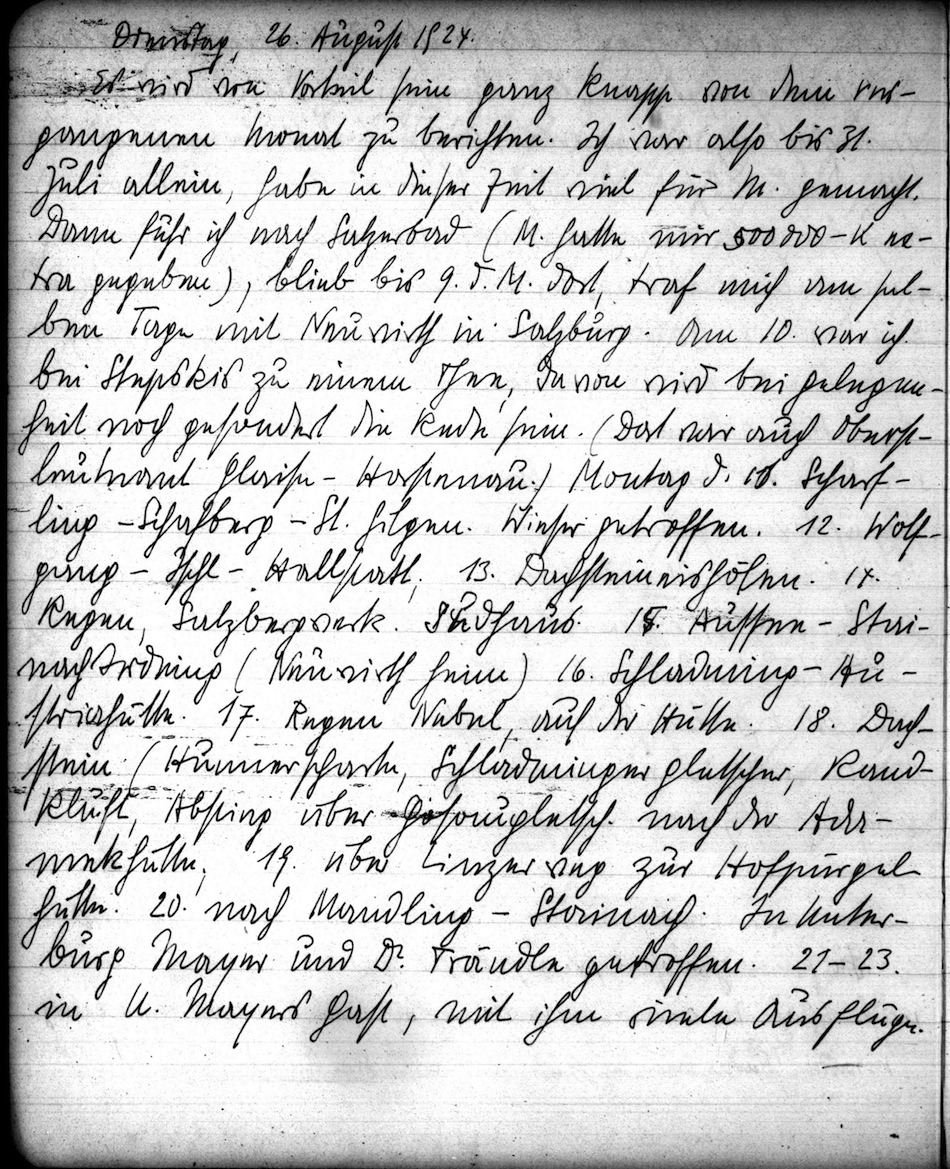 Dienstag, 26. August 1924.
Es wird von Vorteil sein ganz knapp von dem ver-
gangenen Monat zu berichten. Ich war also bis 31.
Juli allein, habe in dieser Zeit viel für M. gemacht.
Dann fuhr ich nach Salzerbad (M. hatte mir 500000 – K ex-
tra gegeben), blieb bis 9. d. M. dort, traf mich am sel-
ben Tage mit Neuwirth in Salzburg. Am 10. war ich
bei Stepskis zu einem Thee, davon wird bei gelegen-
heit noch gesondert die Rede sein. (Dort war auch Oberst-
leutnant Glaise – Horstenau.) Montag d. Scharf-
ling – Schafberg – St. Gilgen. Wieser getroffen. 12. Wolf-
gang – Ischl – Hallstatt, 13. Dachsteineishöhlen. 14.
Regen, Salzbergwerk. Sudhaus. 15. Aussee – Stai-
nach Irdning (Neuwirth heim) 16. Schladming – Au-
striahütte. 17. Regen Nebel, auf der Hütte. 18. Dach-
stein (Hunnerscharte, Schladminger gletscher, Rand-
kluft, Abstieg über Gosaugletsch. nach der Ada-
mekhütte, 19. über Linzerweg zur Hofpürgel
hütte. 20. nach Mandling – Stainach. In Unter-
burg Mayer und Dr. Trändle getroffen. 21 – 23.
in U. Mayers Gast, mit ihm viele Ausflüge.